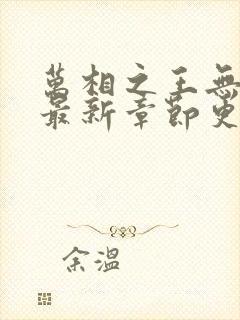 萬相之王無
最新章節更
余溫